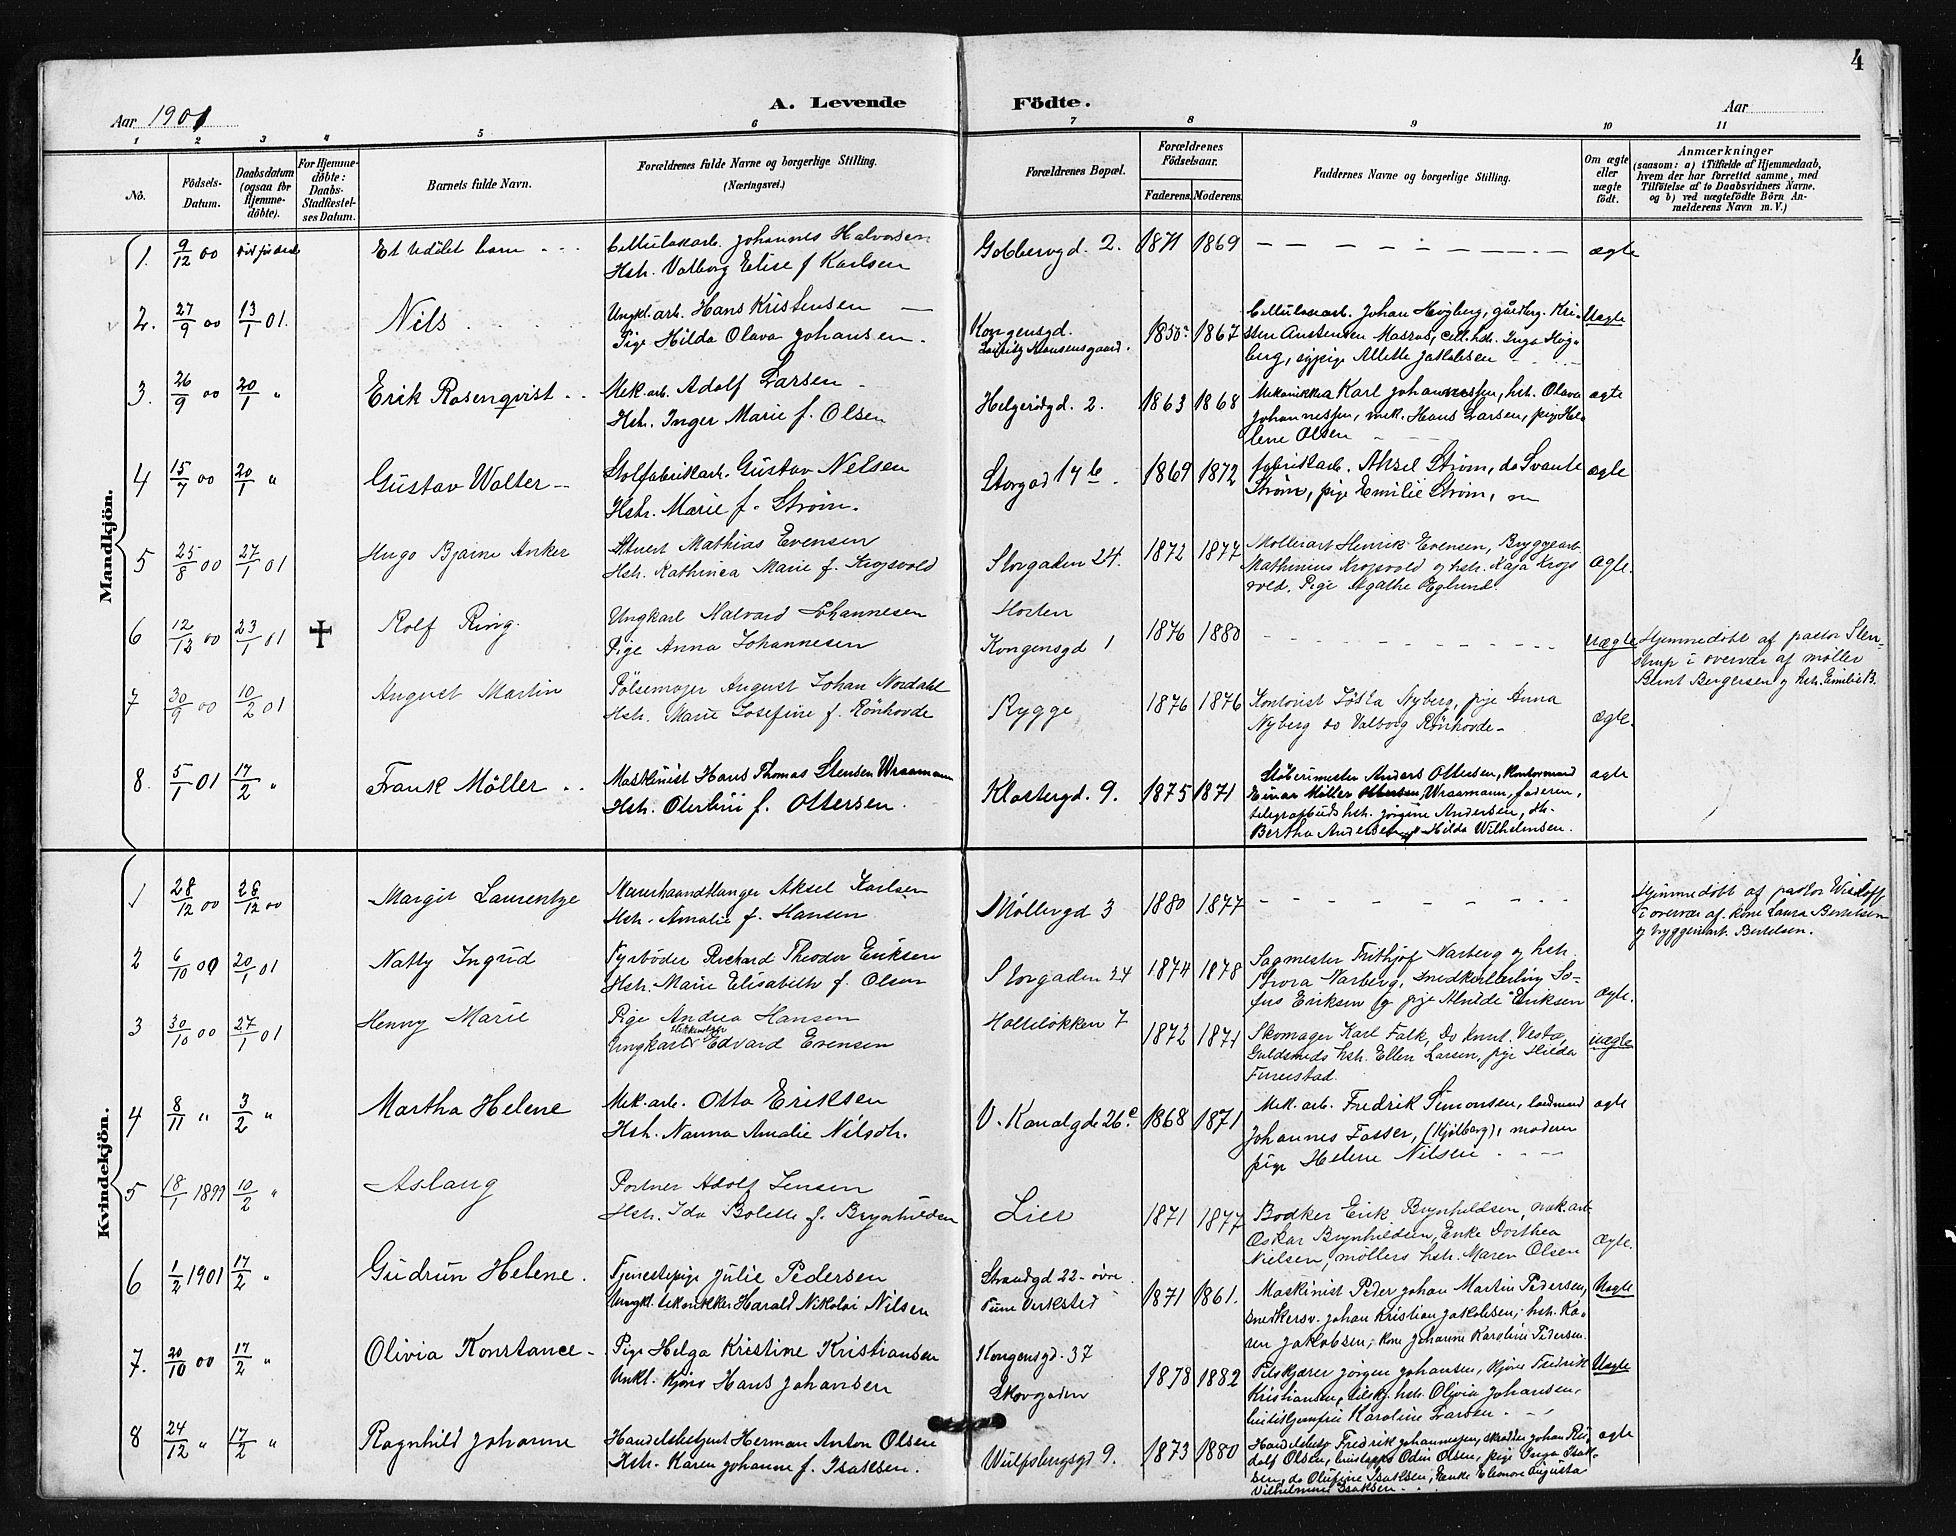 4
A. Levende Födte.
Aar 1901
Aar
1 2 3 4 5 6 7 8 9 10 11
No.
Födsels-Datum.
Daabsdatum (ogsaa for Hjemme-döbte).
For Hjemme-döbte: Daabs-Stadfæstel-ses Datum.
Barnets fulde Navn.
Forældrenes fulde Navne og borgerlige Stilling. (Næringsvei.)
Forældrenes Bopæl.
Forældrenes Födselsaar.
Faderens. Moderens.
Faddernes Navne og borgerlige Stilling.
Om ægte eller uægte födt.
Anmærkninger
(saasom: a) i Tilfælde af Hjemmedaab, hvem der har forrettet samme, med Tilföielse af to Daabsvidners Navne, og b) ved uægtefödte Börn An-melderens Navn m. V.)
Mandkjön.
1. 9/12 00 Et udöbt barn
Cellulosearb. Johannes Halvorsen
Hstr. Valborg Elise f Karlsen
Gobbervgd. 2. 1871 1869 ægte
2. 27/9 00 13/1 01. Nils
Ungk. arb. Hans Kristensen
Pige Hilda Olava Johansen.
Kongensgd. 1867 Uægte
Cellulosearb. Johan Høgberg, gårdbg. Kri-
sten Anstensen Masrød, cell. hstr. Inga Høg-
berg, sypige Alette Jakobsen
3. 26/9 00 20/1 " Erik Rosenqvist
Mek. arb. Adolf Larsen
Hstr. Inger Marie f. Olsen
Helgerødgd. 2. 1863 1868 ægte
Mekanikker Karl Johannessen, hstr. Olava
Johannessen, mek. Hans Larsen, pige He-
lene Olsen
4 15/7 00 20/1 " Gustav Walter
Stolfabrikarb. Gustav Nelsen
Hstr. Marie f. Strøm.
Storgad 14 b. 1869 1872 ægte
fabrikarb. Aksel Strøm, do Svante
Strøm, pige Emilie Strøm,
5 25/8 00 27/1 01 Hugo Bjarne Anker
Stuert Mathias Evensen
Hstr. Kathinca Marie f. Kropsvold
Storgaden 24. 1872 1877 ægte.
Mollerarb Henrik Evensen, Bryggearb.
Mathinius Kropsvold og hstr. Kaja Krops
vold. Pige Agathe Øglund.
6 12/12 00 23/1 01 Rolf Ring.
Ungkarl Halvard Johannesen
Pige Anna Johannesen
Horten
Kongensgd 1 1876 1880 uægte
Hjemmedöbt af pastor Sten-
strup i overvær af møller
Bernt Bergersen og hstr. Emilie B.
7 30/9 00 10/2 01 August Martin
Pölsemager August Johan Nordahl
Hstr. Marie Josefine f. Rönhovde
Rygge 1876 1876 ægte.
Kontorist Gösta Nyberg, pige Anna
Nyberg do Valborg Rönhovde
8. 5/1 01 17/2 " Frank Möller
Maskinist Hans Thomas Stensen Wraamann
Hstr. Oterline f. Ottersen.
Klostergd. 9. 1875 1871 ægte
Støberimester Anders Ottersen, Kontormand
Einar Møller Wraamann, faderen,
telegrafbuds hstr. Jørgine Andersen, do.
Bertha Andersen og Hilda Wilhelmsen.
Kvindekjön.
1 28/12 00 28/12 00 Margit Laurentze
Murerhaandtlanger Aksel Karlsen
Hstr. Amalie f. Hansen
Møllergd 3 1880 1877
Hjemmedöbt af pastor Wisløff
i overvær af kone Laura Bertelsen
og bryggeriarb. Bertelsen.
2 6/10 00 20/1 01 Nally Ingrid
Fyrböder Richard Theodor Eriksen
Hstr. Marie Elisabeth f. Olsen
Storgaden 24 1874 1878 ægte.
Sagmester Frithjof Narberg og hstr.
Thora Narberg, snedkerlærling So-
fus Eriksen og pige Alvilde Eriksen
3 30/10 00 27/1 01 Henny Marie
Pige Andrea Hansen
Ungkarl Edvard Evensen
Holteløkken 7 1872 1871 uægte
Skomager Karl Falk, Do Knut Vestby,
Guldsmeds hstr. Ellen Larsen, pige Hilda
Furustad.
4 8/11 " 3/2 " Martha Helene
Mek. arb. Otto Eriksen
Hstr. Nanna Amalie Nilsdtr.
V. Kanalgde 26 c. 1868 1871 ægte
Mek. arb. Fredrik Simonsen, landmand
Johannes Fosser, (Kjølberg), moderen
pige Helene Nilsen
5 18/1 1899 10/2 " Aslaug
Portner Adolf Jensen
Hstr. Ida Bolette f. Brynhildsen
Lier 1871 1877 ægte.
Bødker Erik Brynhildsen, mek. arb
Oskar Brynhildsen, Enke Dorthea
Nielsen, møllers hstr. Maren Olsen
6 1/2 1901 17/2 " Gudrun Helene.
Tjenestepige Julie Pedersen
Ungkl. tekniker Harald Nikolai Nilsen
Strandgd 22 - øvre
Tune Verksted 1871 1861. Uægte
Maskinist Peder Johan Martin Pedersen,
snedkersv. Johan Kristian Jakobsen, hstr. Ka-
ren Jakobsen, kone Johanne Karoline Pedersen.
7. 20/10 00 17/2 " Olivia Konstance
Pige Helga Kristine Kristiansen
Unkl. kjøre Hans Johansen
Kongensgd. 37
Skovgaden 1878 1882 Uægte
Filskjærer Jørgen Johansen, kjører Fredrik
Kristiansen, filskj. hstr. Olivia Johansen,
Karoline Larsen
8 24/12 " 17/2 " Ragnhild Johanne
Handelsbetjent Herman Anton Olsen
Hstr. Karen Johanne f. Isaksen.
Wulfsbergsgd 9. 1873 1880 ægte
Handelsbetj. Fredrik Johannessen, skrædder Johan Ru-
dolf Olsen, Odin Olsen, pige Inga Isak-
sen, do Olufine Isaksen, Enke Eleonore Augusta
Vilhelmine Isaksen